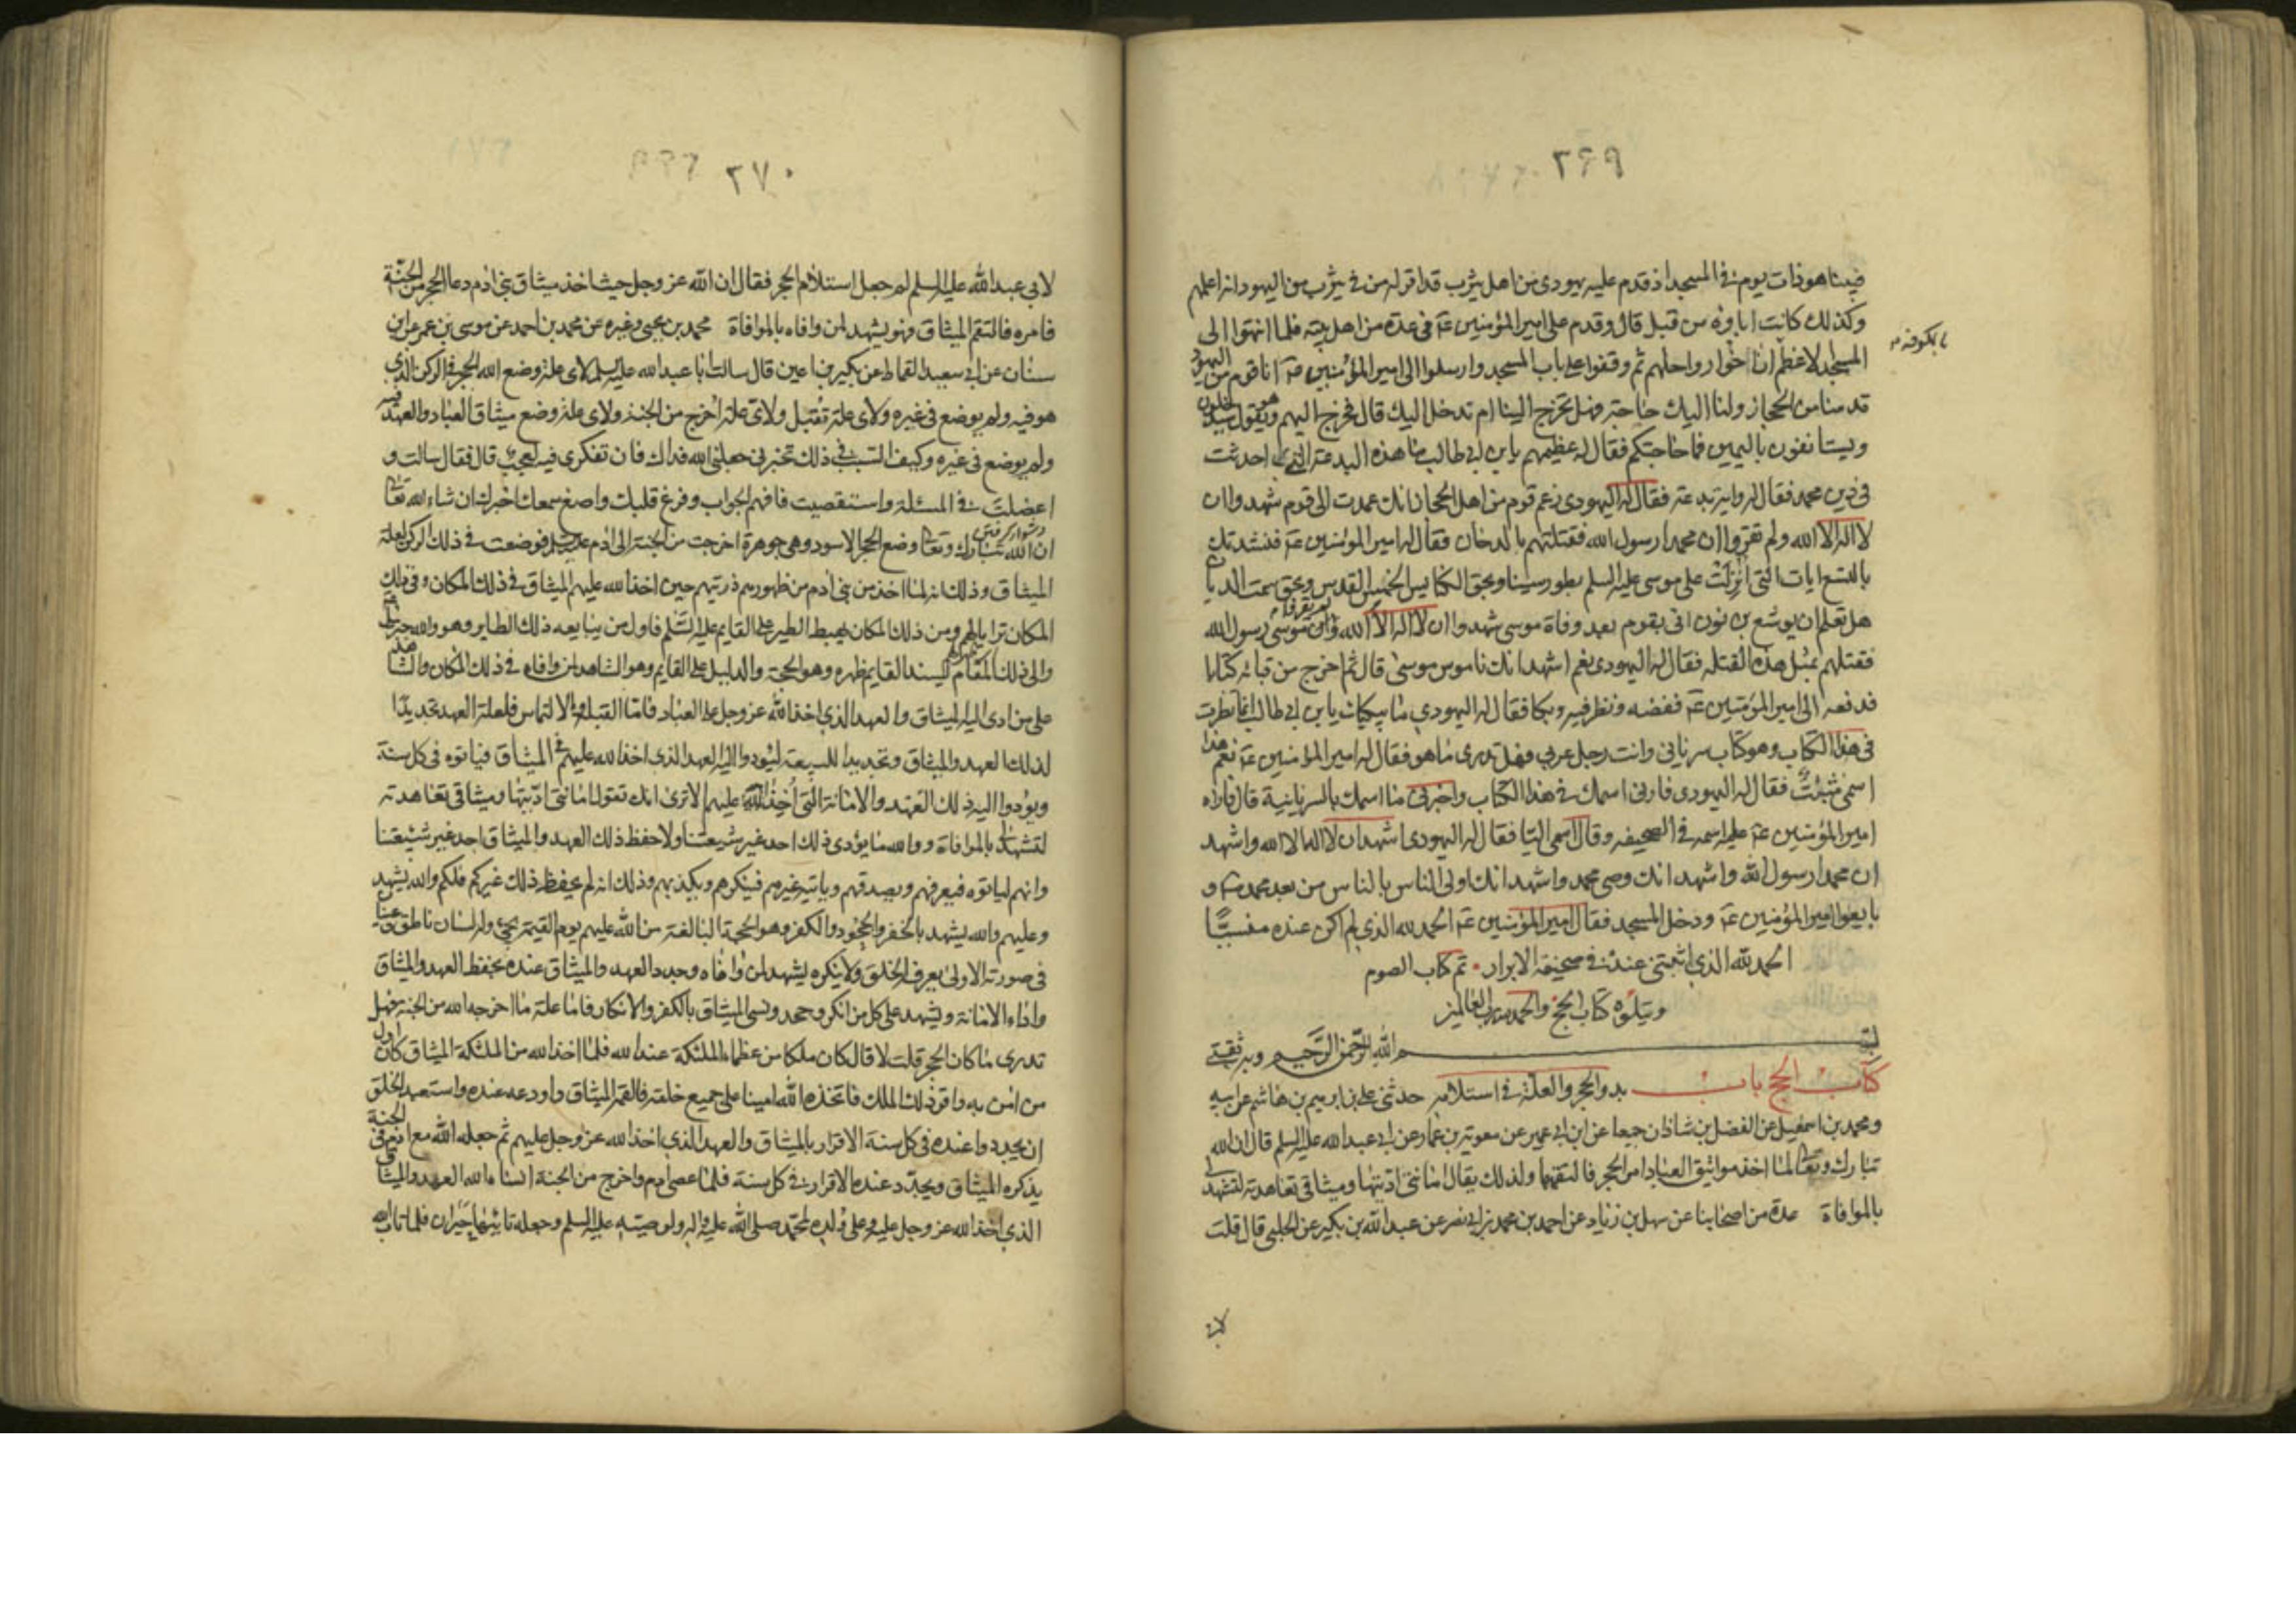 ٢٦٩
فبينا هو ذات يوم في المسجد اذ قدم عليه يهودى من اهل يثرب قد اقر له من في يثرب من اليهود انه اعلمهم
وكذلك كانت اباؤه من قبل قال وقدم على امير المؤمنين عۃ فى عدة من اهل بيته فلما انتهوا الى
المسجد الاعظم بالكوفه اناخوا رواحلهم ثم وقفوا على باب المسجد وارسلوا الى امير المؤمنين عۃ انا قوم من اليهود
قدمنا من الحجاز ولنا اليك حاجة فهل تخرج الينا ام ندخل اليك قال فخرج اليهم وهو يقول سيدخلون
ويستانفون باليمين فما حاجتكم فقال له عظيمهم يا بن ابي طالب ما هذه البدعة التي احدثت
فى دين محمد فقال له واية بدعة فقال له اليهودى زعم قوم من اهل الحجاز انك عمدت الى قوم شهدوا ان
لا اله الا الله ولم تقروا ان محمدا رسول الله فقتلتهم بالدخان فقال له امير المؤمنين عۃ فنشدتك
بالتسع ايات التى انزلت على موسى عليه السلم بطور سينا وبحق الكنايس الخمس القدس وبحق سمت الديان
هل تعلم ان يوشع بن نون اتى بقوم بعد وفاة موسى شهدوا ان لا اله الا الله ولم يقروا ان موسى رسول الله
فقتلهم بمثل هذه القتله فقال له اليهودى نعم اشهد انك ناموس موسى قال ثم اخرج من قبائه كتابا
فدفعه الى امير المؤمنين عۃ ففضه ونظر فيه وبكا فقال له اليهودي ما يبكيك يا بن ابي طالب انما نظرت
فى هذا الكتاب وهو كتاب سريانى وانت رجل عربي فهل تدرى ما هو فقال له امير المؤمنين عۃ نعم هذا
اسمى مثبت فقال له اليهودى فارنى اسمك في هذا الكتاب واخبرنى ما اسمك بالسريانية قال فاراه
امير المؤمنين عۃ عليه اسمه في الصحيفه وقال اسمى اليا فقال له اليهودى اشهد ان لا اله الا الله واشهد
ان محمدا رسول الله واشهد انك وصى محمد واشهد انك اولى الناس بالناس من بعد محمد و
بايعوا امير المؤمنين عۃ ودخل المسجد فقال امير المؤمنين عۃ الحمد لله الذي لم اكن عنده منسيًّا
الحمد لله الذي اثبتنى عنده في صحيفة الابرار تم كتاب الصوم
ويتلوه كتاب الحج والحمد لله رب العالمين
بسم الله الرحمن الرحيم وبه ثقتى
كتاب الحج باب بدو الحجر والعلة في استلامه حدثنى على بن ابرهيم بن هاشم عن ابيه
ومحمد بن اسمعيل عن الفضل بن شاذان جميعا عن ابن ابي عمير عن معوية بن عمار عن ابي عبد الله عليه السلم قال ان الله
تبارك وتعالى لما اخذ مواثيق العباد امر الحجر فالتقمها ولذلك يقال امانتى اديتها وميثاقى تعاهدته لتشهد لى
بالموافاة عدة من اصحابنا عن سهل بن زياد عن احمد بن محمد بن ابي نصر عن عبد الله بن بكير عن الحلبى قال قلت
لابى
٢٧٠
لابى عبد الله عليه السلم لم جعل استلام الحجر فقال ان الله عز وجل حيث اخذ ميثاق بنى ادم دعا الحجر من الجنة
فامره فالتقم الميثاق فهو يشهد لمن وافاه بالموافاة محمد بن يحيى وغيره عن محمد بن احمد عن موسى بن عمر عن ابن
سنان عن ابي سعيد القماط عن بكير بن اعين قال سالت ابا عبد الله عليه السلم لاى علة وضع الله الحجر في الركن الذى
هو فيه ولم يوضع فى غيره ولاى علة تقبل ولاى علة اخرج من الجنة ولاى علة وضع ميثاق العباد والعهد فيه
ولم يوضع فى غيره وكيف السبب في ذلك تخبرنى جعلنى الله فداك فان تفكرى فيه لعجب قال فقال سالت و
اعضلت في المسئلة واستقصيت فافهم الجواب وفرغ قلبك واصغ سمعك اخبرك ان شاء الله تعالى
ان الله تبارك وتعالى وضع الحجر الاسود وهى جوهرة اخرجت من الجنة الى ادم فوضعت في ذلك الركن لعلة
الميثاق وذلك انه لما اخذ من بنى ادم من ظهورهم ذريتهم حين اخذ الله عليهم الميثاق في ذلك المكان وفى ذلك
المكان ترايا لهم ومن ذلك المكان يهبط الطير على القايم عليه السلم فاول من يبايعه ذلك الطاير وهو والله جبرئيل
والى ذلك المقام يسند القايم ظهره وهو الحجة والدليل على القايم وهو الشاهد لمن وافاه في ذلك المكان والشاهد
على من ادى اليه الميثاق والعهد الذى اخذ الله عز وجل على العباد فاما القبلة والالتماس فلعلة العهد تجديدا
لذلك العهد والميثاق وتجديدا للبيعة ليؤدوا اليه العهد الذى اخذ الله عليهم في الميثاق فياتوه فى كل سنة
ويؤدوا اليه ذلك العهد والامانة التى اخذ الله عليهم الا ترى انك تقول امانتى اديتها وميثاقى تعاهدته
لتشهد لى بالموافاة ووالله ما يؤدى ذلك احد غير شيعتنا ولا حفظ ذلك العهد والميثاق احد غير شيعتنا
وانهم لياتوه فيعرفهم ويصدقهم وياتيه غيرهم فينكرهم ويكذبهم وذلك انه لم يحفظ ذلك غيركم فلكم والله يشهد
وعليهم والله يشهد بالخفر والجحود والكفر وهو الحجة البالغة من الله عليهم يوم القيمة يجئ وله لسان ناطق وعينان
فى صورته الاولى يعرفه الخلق ولا ينكره يشهد لمن وافاه وجدد العهد والميثاق عنده بحفظ العهد والميثاق
واداء الامانة ويشهد على كل من انكر وجحد ونسى الميثاق بالكفر والانكار فاما علة ما اخرجه الله من الجنة فهل
تدرى ما كان الحجر قلت لا قال كان ملكا من عظماء الملئكة عند الله فلما اخذ الله من الملئكة الميثاق كان اول
من امن به واقر ذلك الملك فاتخذه الله امينا على جميع خلقه فالقمه الميثاق واودعه عنده واستعبد الخلق
ان يجددوا عنده فى كل سنة الاقرار بالميثاق والعهد الذى اخذ الله عز وجل عليهم ثم جعله الله مع ادم فى الجنة
يذكره الميثاق ويجدد عنده الاقرار في كل سنة فلما عصى ادم واخرج من الجنة انساه الله العهد والميثاق
الذى اخذ الله عز وجل عليه وعلى ولده لمحمد صلى الله عليه واله ولوصيه عليه السلم وجعله تائها حيران فلما تاب الله